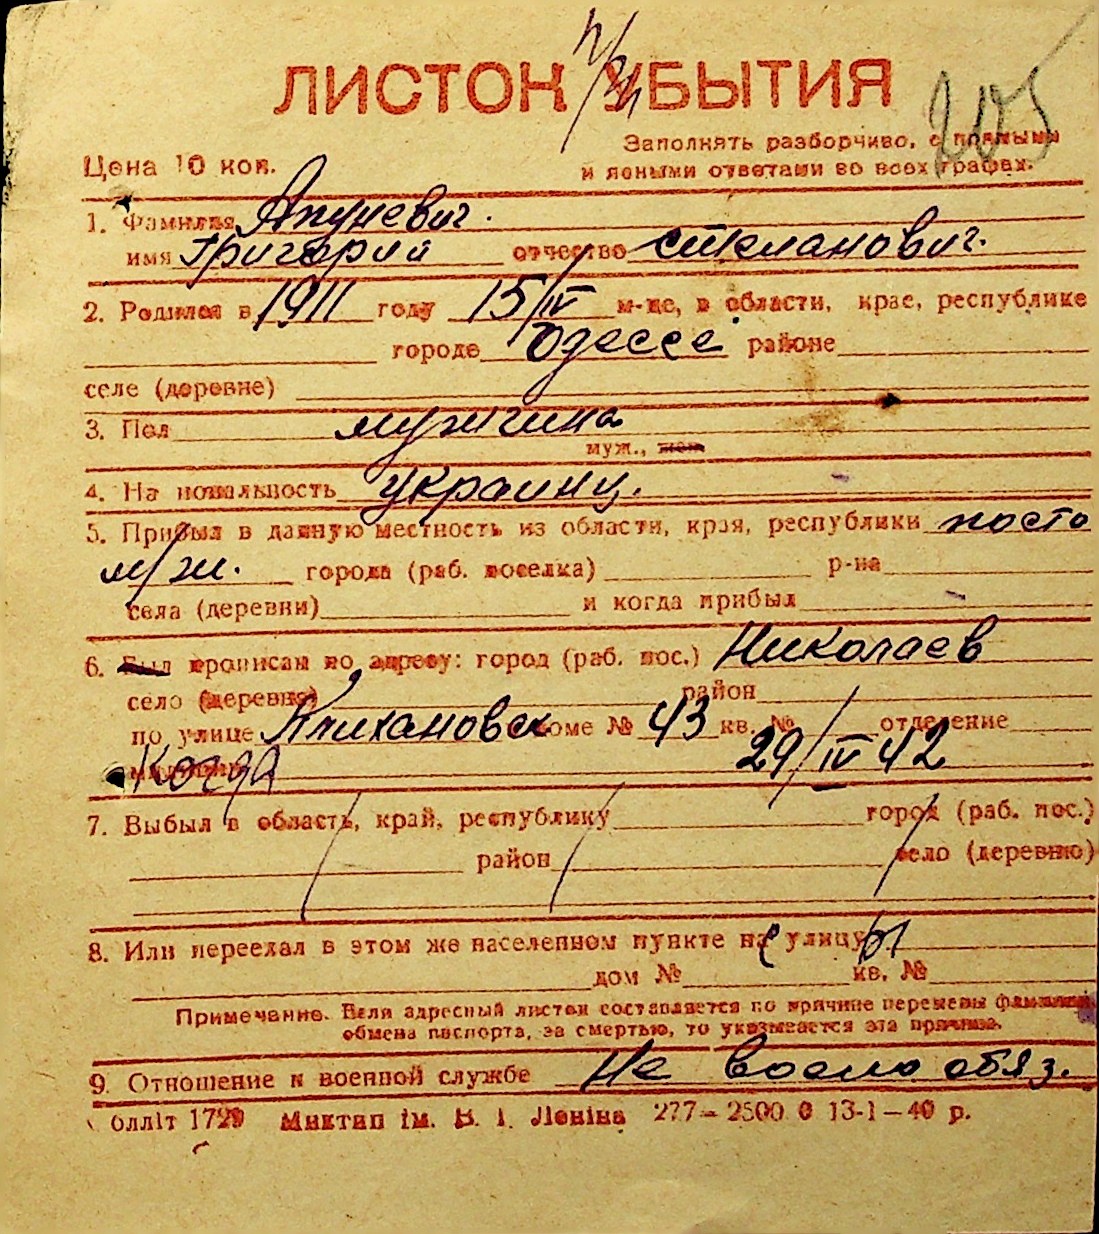 ЛИСТОК УБЫТИЯ
205
Заполнять разборчиво, с прямыми
Цена 10 коп.
и ясными ответами во всех графах.
1. Фамилия Апуневич.
имя Григорий отчество Степанович.
2. Родился в 1911 году 15/IV м-це, в области, крае, республике
городе Одессе районе
селе (деревне)
3. Пол мужчина
муж., жен
4. Национальность украинц.
5. Прибыл в данную местность из области, края, республики посто
м/ж. города (раб. поселка) р-на
села (деревни) и когда прибыл
6. Был прописан по адресу: город (раб. пос.) Николаев
село (деревня) район
по улице доме № 43 кв. № отделение
милиции Когда 29/IV 42
7. Выбыл в область, край, республику город (раб. пос.)
район село (деревню)
8. Или переехал в этом же населенном пункте на улицу
дом № кв. №
Примечание. Если адресный листок составляется по причине перемены фамилии,
обмена паспорта, за смертью, то указывается эта причина.
9. Отношение к военной службе Не военнообяз.
Облліт 1729 Миктип ім. В. І. Леніна 277–2500 0 13-1–40 р.